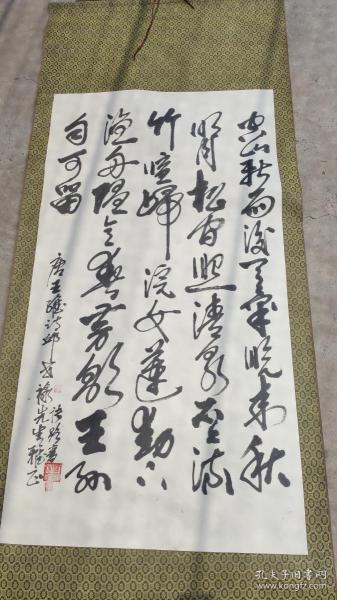 空山新雨後天氣晚來秋
明月松間照清泉石上流
竹喧歸浣女蓮動下
漁舟隨意春芳歇王孫
自可留
唐王維詩
先生雅正
孔夫子旧书网